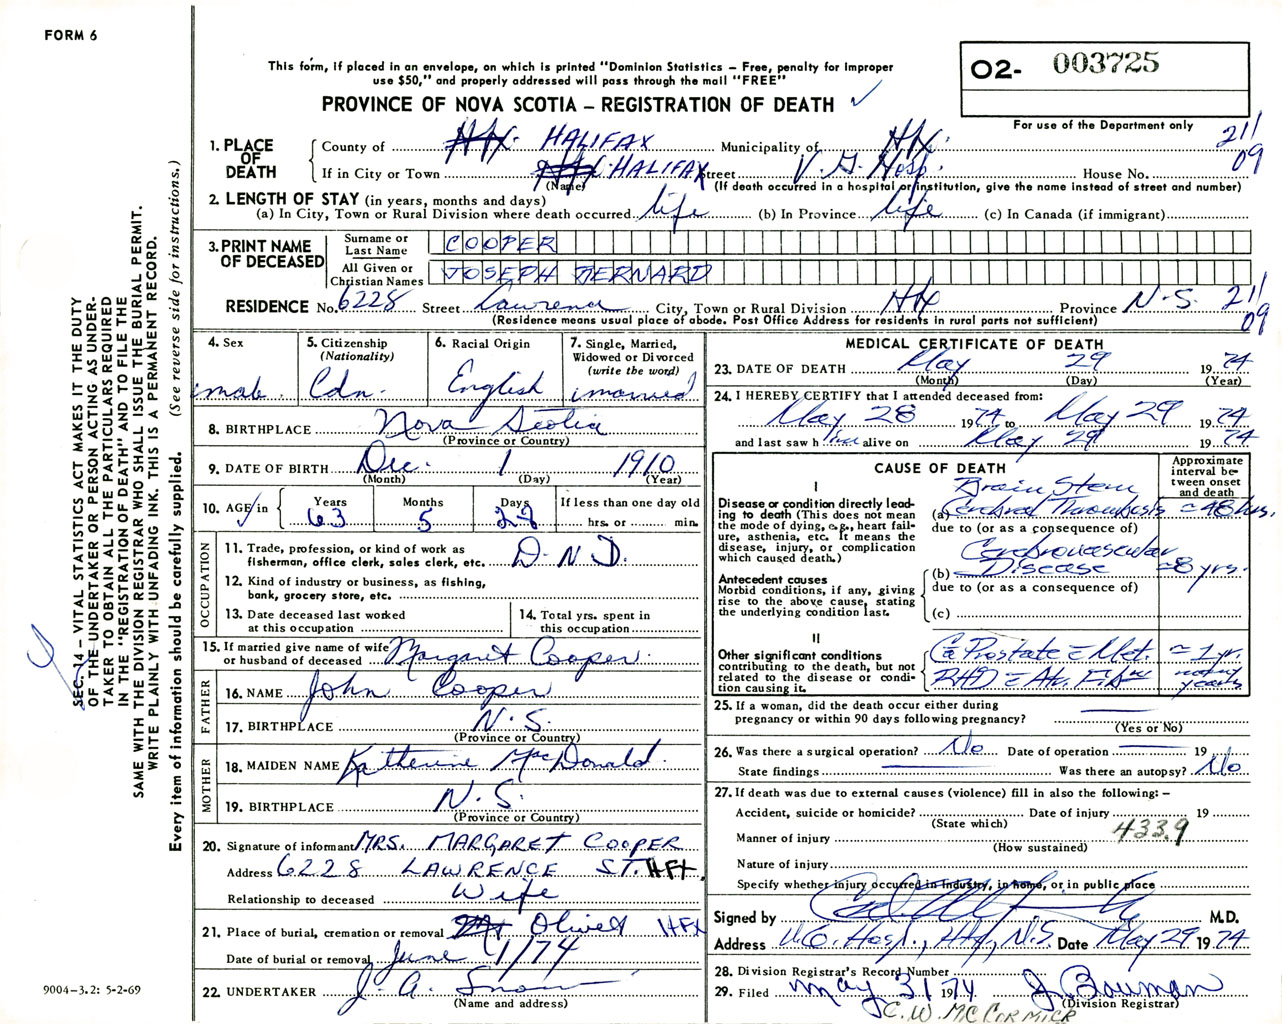 FORM 6
This form, if placed in an envelope, on which is printed "Dominion Statistics – Free, penalty for improper
use $50," and properly addressed will pass through the mail "FREE"
PROVINCE OF NOVA SCOTIA – REGISTRATION OF DEATH ✓
O2- 003725
For use of the Department only
21/
09
1. PLACE OF DEATH
County of Hfx. HALIFAX Municipality of Hfx.
If in City or Town Hfx. HALIFAX Street V. G. Hosp. House No.
(Name) (If death occurred in a hospital or institution, give the name instead of street and number)
2. LENGTH OF STAY (in years, months and days)
(a) In City, Town or Rural Division where death occurred life (b) In Province life (c) In Canada (if immigrant)
3. PRINT NAME OF DECEASED
Surname or Last Name COOPER
All Given or Christian Names JOSEPH BERNARD
RESIDENCE No. 6228 Street Lawrence City, Town or Rural Division Hfx Province N.S. 21/
09
(Residence means usual place of abode. Post Office Address for residents in rural parts not sufficient)
4. Sex male.
5. Citizenship (Nationality) Cdn.
6. Racial Origin English
7. Single, Married, Widowed or Divorced (write the word) married
8. BIRTHPLACE Nova Scotia
(Province or Country)
9. DATE OF BIRTH Dec. 1 1910
(Month) (Day) (Year)
10. AGE in Years 63 Months 5 Days 28 If less than one day old hrs. or min.
OCCUPATION
11. Trade, profession, or kind of work as
fisherman, office clerk, sales clerk, etc. D.N.D.
12. Kind of industry or business, as fishing,
bank, grocery store, etc.
13. Date deceased last worked
at this occupation
14. Total yrs. spent in
this occupation
15. If married give name of wife
or husband of deceased Margaret Cooper.
FATHER
16. NAME John Cooper
17. BIRTHPLACE N.S.
(Province or Country)
MOTHER
18. MAIDEN NAME Katherine MacDonald.
19. BIRTHPLACE N.S.
(Province or Country)
20. Signature of informant MRS. MARGARET COOPER
Address 6228 LAWRENCE ST. HFX.
Relationship to deceased Wife
21. Place of burial, cremation or removal Mt Olivet HFX
Date of burial or removal June 1/74
22. UNDERTAKER J. A. Snow
(Name and address)
MEDICAL CERTIFICATE OF DEATH
23. DATE OF DEATH May 29 1974
(Month) (Day) (Year)
24. I HEREBY CERTIFY that I attended deceased from:
May 28 1974 to May 29 1974
and last saw him alive on May 29 1974
CAUSE OF DEATH
Approximate interval between onset and death
I
Disease or condition directly leading to death (This does not
the mode of dying, e.g., heart failure, asthenia, etc. It means the
disease, injury, or complication
which caused death.)
Brain Stem
(a) Cerebral Thrombosis = 48 hrs.
due to (or as a consequence of)
Cerebrovascular
(b) Disease =8 yrs.
due to (or as a consequence of)
(c)
Antecedent causes
Morbid conditions, if any, giving
rise to the above cause, stating
the underlying condition last.
II
Other significant conditions
contributing to the death, but not
related to the disease or condition causing it.
Ca Prostate c̄ Met. = 1 yr.
RHD c̄ Atr. Fib. many years
25. If a woman, did the death occur either during
pregnancy or within 90 days following pregnancy?
(Yes or No)
26. Was there a surgical operation? No Date of operation 19
State findings Was there an autopsy? No
27. If death was due to external causes (violence) fill in also the following: –
Accident, suicide or homicide? Date of injury 19
(State which)
Manner of injury 433.9
(How sustained)
Nature of injury
Specify whether injury occurred in industry, in home, or in public place
Signed by M.D.
Address V.G. Hosp., Hfx, N.S. Date May 29 1974
28. Division Registrar's Record Number
29. Filed May 31 1974 J Bowman
(Division Registrar)
C.W. McCORMICK
SEC. 14 – VITAL STATISTICS ACT MAKES IT THE DUTY
OF THE UNDERTAKER OR PERSON ACTING AS UNDERTAKER TO OBTAIN ALL THE PARTICULARS REQUIRED
IN THE "REGISTRATION OF DEATH" AND TO FILE THE
SAME WITH THE DIVISION REGISTRAR WHO SHALL ISSUE THE BURIAL PERMIT.
WRITE PLAINLY WITH UNFADING INK. THIS IS A PERMANENT RECORD.
Every item of information should be carefully supplied. (See reverse side for instructions.)
9004-3.2: 5-2-69